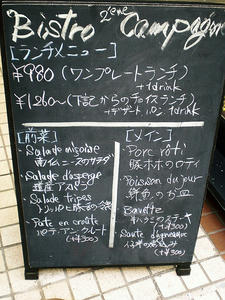 Bistro 2eme Campagne
[ランチメニュー]
¥980(ワンプレートランチ)
+1drink
¥1260〜(下記からのチョイスランチ)
+デザート パン 1drink
[前菜]
・Salade niçoise
南仏ニースのサラダ
・Salade d'asperge
・Salade tripes
・Pate en croute
パテ・アン・クルート
(+¥300)
[メイン]
・Porc roti
豚ホホのロティ
・Poisson du jour
鮮魚のお皿
・Bavette
牛ハラミのステーキ
(+¥300)
(+¥300)